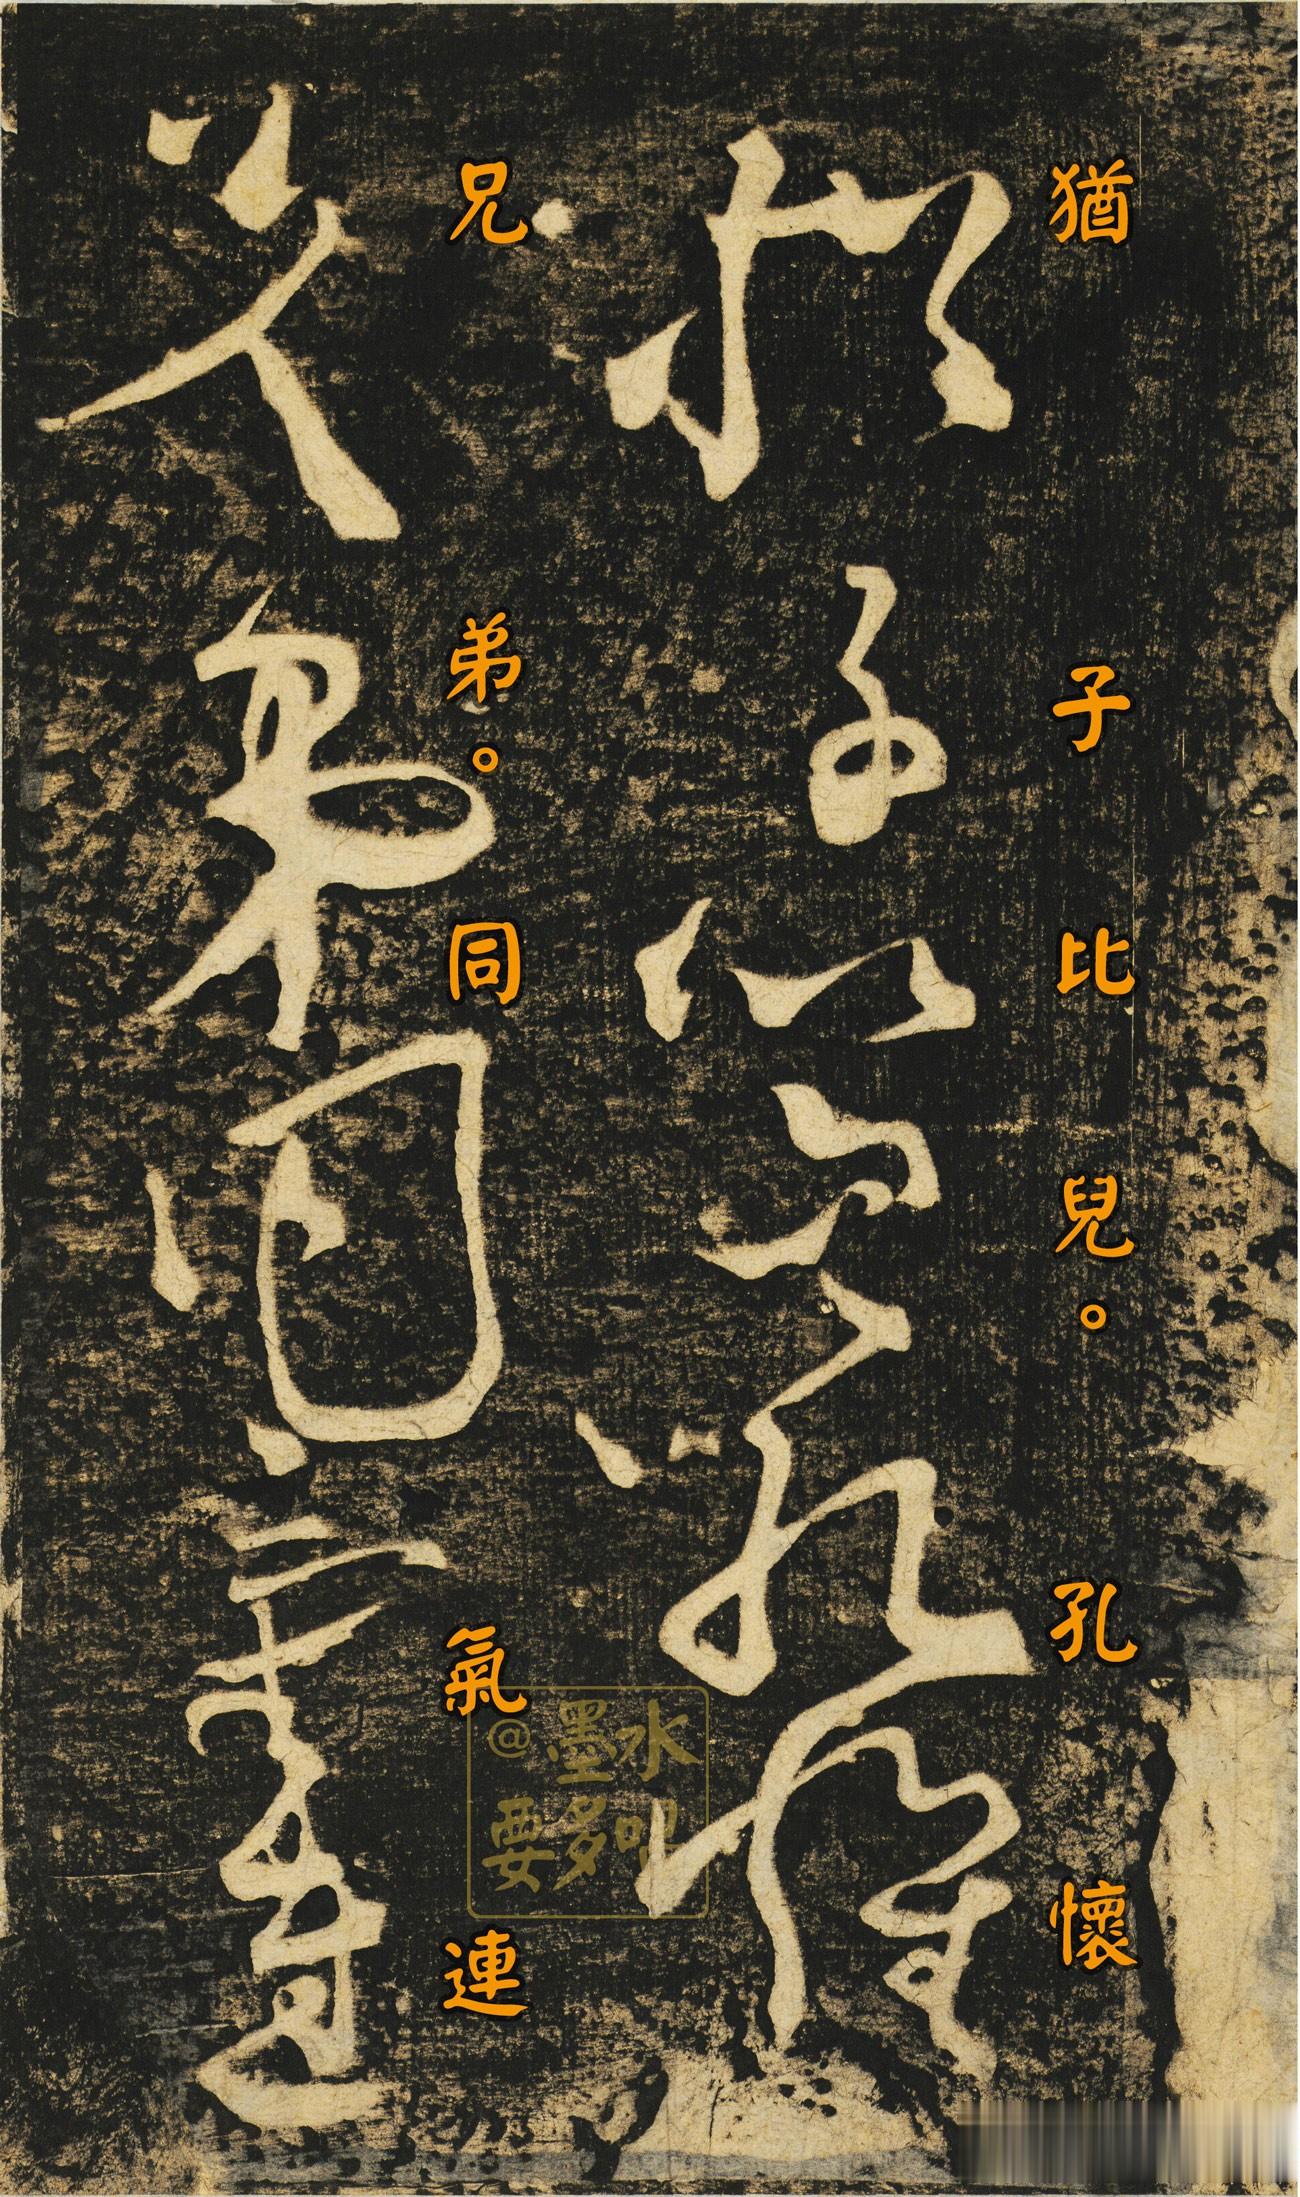 猶子比兒。孔懷
兄弟。同氣連
@墨水
要多吖